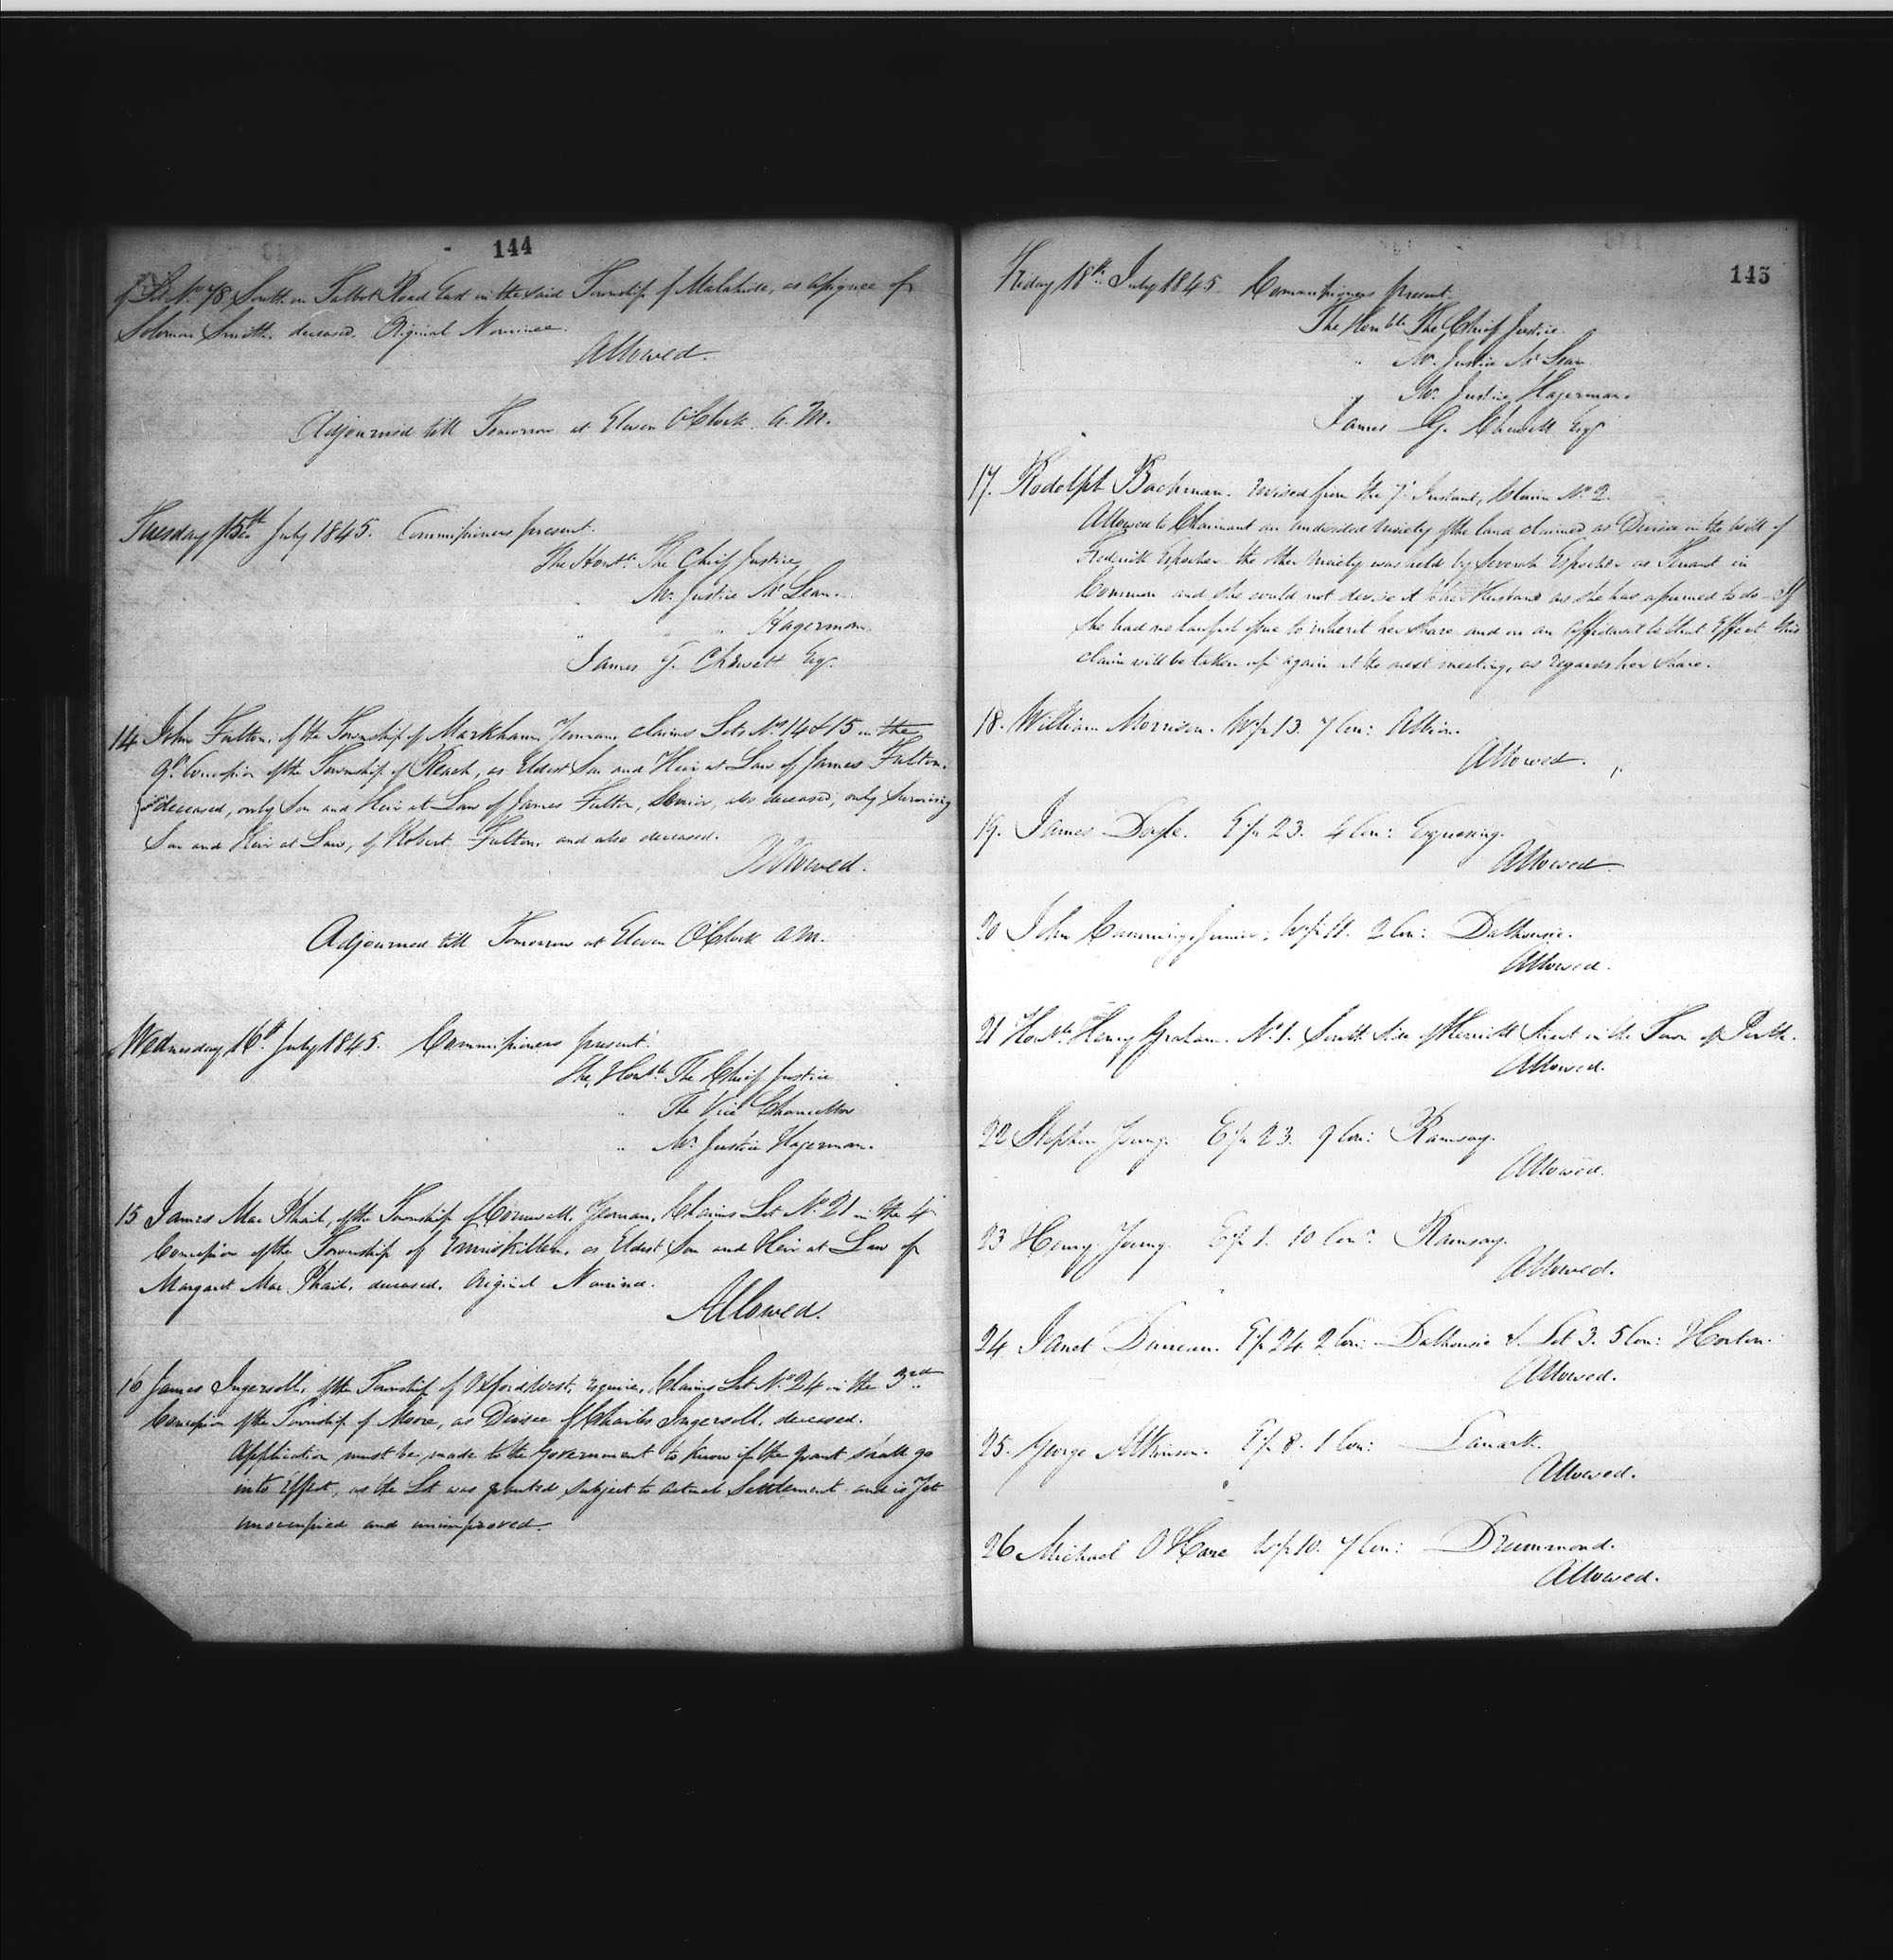 144
of Lot No 78 South on Talbot Road East in the said Township of Malahide, as assignee of
Solomon Smith, deceased. Original Nominee.
Allowed.
Adjourned till Tomorrow at Eleven O'Clock A.M.
Tuesday 15th July 1845. Commissioners present.
The Honble The Chief Justice
Mr Justice McLean.
" " Hagerman.
James G. Chewett Esqr
14 John Fulton, of the Township of Markham, Yeoman, claims Lots No 14 & 15 in the
9th Concession of the Township of Reach, as Eldest Son and Heir at Law of James Fulton,
deceased, only Son and Heir at Law of James Fulton, Senior, also deceased, only surviving
Son and Heir at Law, of Robert Fulton, and also deceased.
Allowed.
Adjourned till Tomorrow at Eleven O'Clock A.M.
Wednesday 16th July 1845. Commissioners present.
The Honble The Chief Justice
" The Vice Chancellor
" Mr Justice Hagerman.
15 James Mac Phail, of the Township of Cornwall, Yeoman, Claims Lot No 21 in the 4th
Concession of the Township of Enniskillen, as Eldest Son and Heir at Law of
Margaret Mac Phail, deceased. Original Nominee.
Allowed.
16 James Ingersoll, of the Township of Oxford West, Esquire, Claims Lot No 24 in the 3rd
Concession of the Township of Moore, as Devisee of Charles Ingersoll, deceased.
Application must be made to the Government to know if the grant shall go
into Effect, as the Lot was granted subject to actual Settlement and is yet
unoccupied and unimproved.
145
Friday 18th July 1845. Commissioners present.
The Honble The Chief Justice.
" Mr Justice McLean
" Mr Justice Hagerman.
James G. Chewett Esqr
17. Rodolph Bachman. revised from the 7th Instant, Claim No 2.
Allowed to Claimant an undivided moiety of the land claimed as Devisee in the Will of
Frederick the other moiety was held by as Tenant in
Common and she could not devise it to her Husband as she has assumed to do - If
she had no lawful issue to inherit her share and on an Affidavit to that Effect this
claim will be taken up again at the next meeting, as regards her share.
18. William Morrison. W½ 13. 7 Con: Albion.
Allowed. "
19. James Doyle. E½ 23. 4 Con: Esquesing.
Allowed
20 John Cumming, Junior; W½ 11. 2 Con: Dalhousie.
Allowed.
21 Honble Henry Graham. No 1. South side of Herriott Street in the Town of Perth.
Allowed.
22 Stephen Young. E½ 23. 9 Con: Ramsay.
Allowed.
23 Henry Young. E½ 1. 10 Con: Ramsay.
Allowed.
24 Janet Duncan. E½ 24. 2 Con: Dalhousie & Lot 3. 5 Con: Horton.
Allowed.
25. George Atkinson. E½ 8. 1 Con: Lanark.
Allowed.
26 Michael O'Hare W½ 10. 7 Con: Drummond.
Allowed.